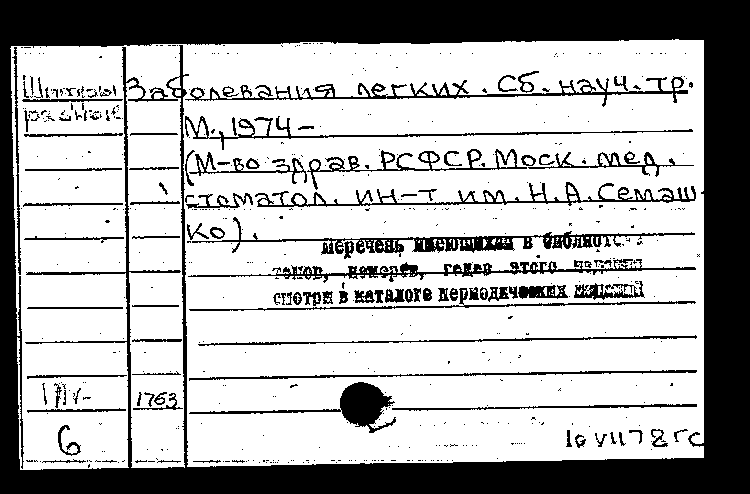 Шифры Заболевания легких. Сб. науч. тр.
разные
М., 1974 –
(М-во здрав. РСФСР. Моск. мед.
стоматол. ин-т им. Н.А. Семаш-
ко).
Перечень имеющихся в библиотеке
томов, номеров, годов этого издания
смотри в каталоге периодических изданий
1763
6
10 VII 78 гс